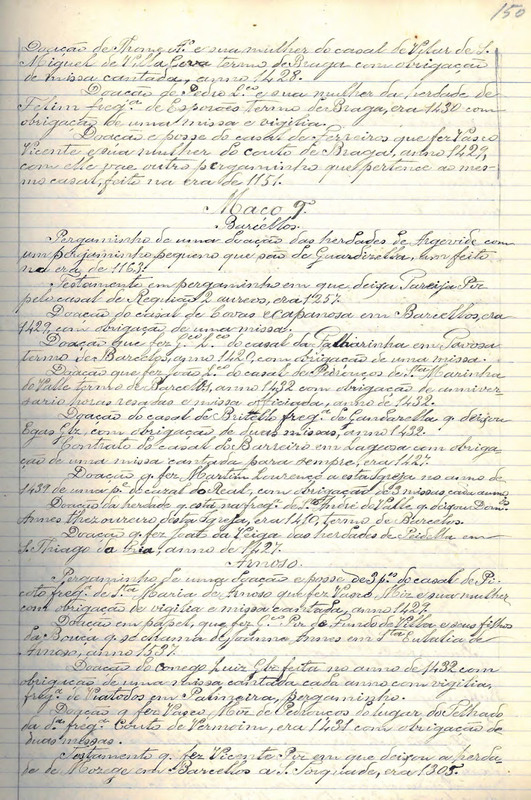 150
Doação de Thomé Af. e sua mulher do casal de Vilar de S.
Miguel de Villa Cova termo de Braga com obrigação
de missa cantada, anno 1428.
Doação de Pedro L.ço e sua mulher da herdade de
freg.ª de Esporões termo de Braga, era 1430 com
obrigação de uma missa e vigilia.
Doação e posse do casal de Ferreiros que fez Vasco
Vicente e sua mulher do couto de Braga, anno 1429,
com elle vae outro pergaminho que pertence ao mes-
mo casal, feito na era de 1151.
Maço 9.
Barcellos.
Pergaminho de uma doação das herdades de Argevide com
um pergaminho pequeno que são de Guardizella, um feito
na era de 1163.
Testamento em pergaminho em que deixa
pelo casal de 2 aureos, era 1257.
Doação do casal de Covas e Capanosa em Barcellos, era
1429, com obrigação de uma missa.
Doação que fez do casal da em
termo de Barcellos, anno 1429, com obrigação de uma missa.
Doação que fez João L.ço do casal de de Sta. Marinha
do Valle termo de Barcellos, anno 1432 com obrigação de anniver-
sario horas resadas e missa officiada, anno de 1432.
Doação do casal de freg.ª de q. deixou
Egas Glz. com obrigação de duas missas, anno 1432.
Contrato do casal de Barreiro em Lagoça com obriga-
ção de uma missa cantada para sempre, era 1427.
Doação q. fez Martim Lourenço a esta Igreja no anno de
1439 de uma p.te do cazal do Real, com obrigação de 3 missas cada anno.
Doação da herdade q. está na freg.ª de S.to André do Valle q. deixou Dom.os
Annes thezoureiro desta Igreja, era 1410, termo de Barcellos.
Doação q. fez da Veiga das herdades de em
S. Thiago da anno de 1427.
Arnoso.
Pergaminho de uma doação e posse de 3 p.es do casal de Pi-
coto freg.ª de S.ta Maria de Arnoso que fez Vasco Miz e sua mulher
com obrigação de vigilia e missa cantada, anno 1429.
Doação em papel, que fez G.ço Pir. do Fundo de Villa e seus filhos
da Bouça q. se chama de Joanne Annes em S.ta Eulalia de
Arnoso, anno 1537.
Doação do conego Luiz Glz feita no anno de 1432 com
obrigação de uma missa cantada cada anno com vigilia,
freg.ª de Viatodos em Palmeira, pergaminho.
Doação q. fez Vasco Miz de Pedrouços do lugar do Telhado
da d.ª freg.ª Couto de Vermoim, era 1431 com obrigação de
duas missas.
Testamento q. fez Vicente Pir em que deixou a herda-
de de Morege em Barcellos a S. Torquade, era 1305.